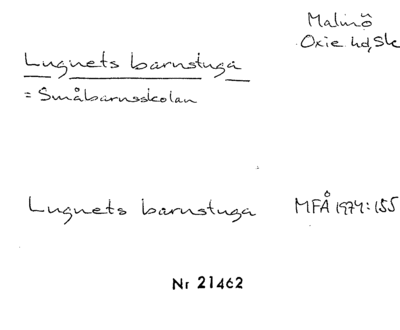 Malmö
Oxie hd, Sk
Lugnets barnstuga
= Småbarnsskolan
Lugnets barnstuga MFÅ 1974:155
Nr 21462